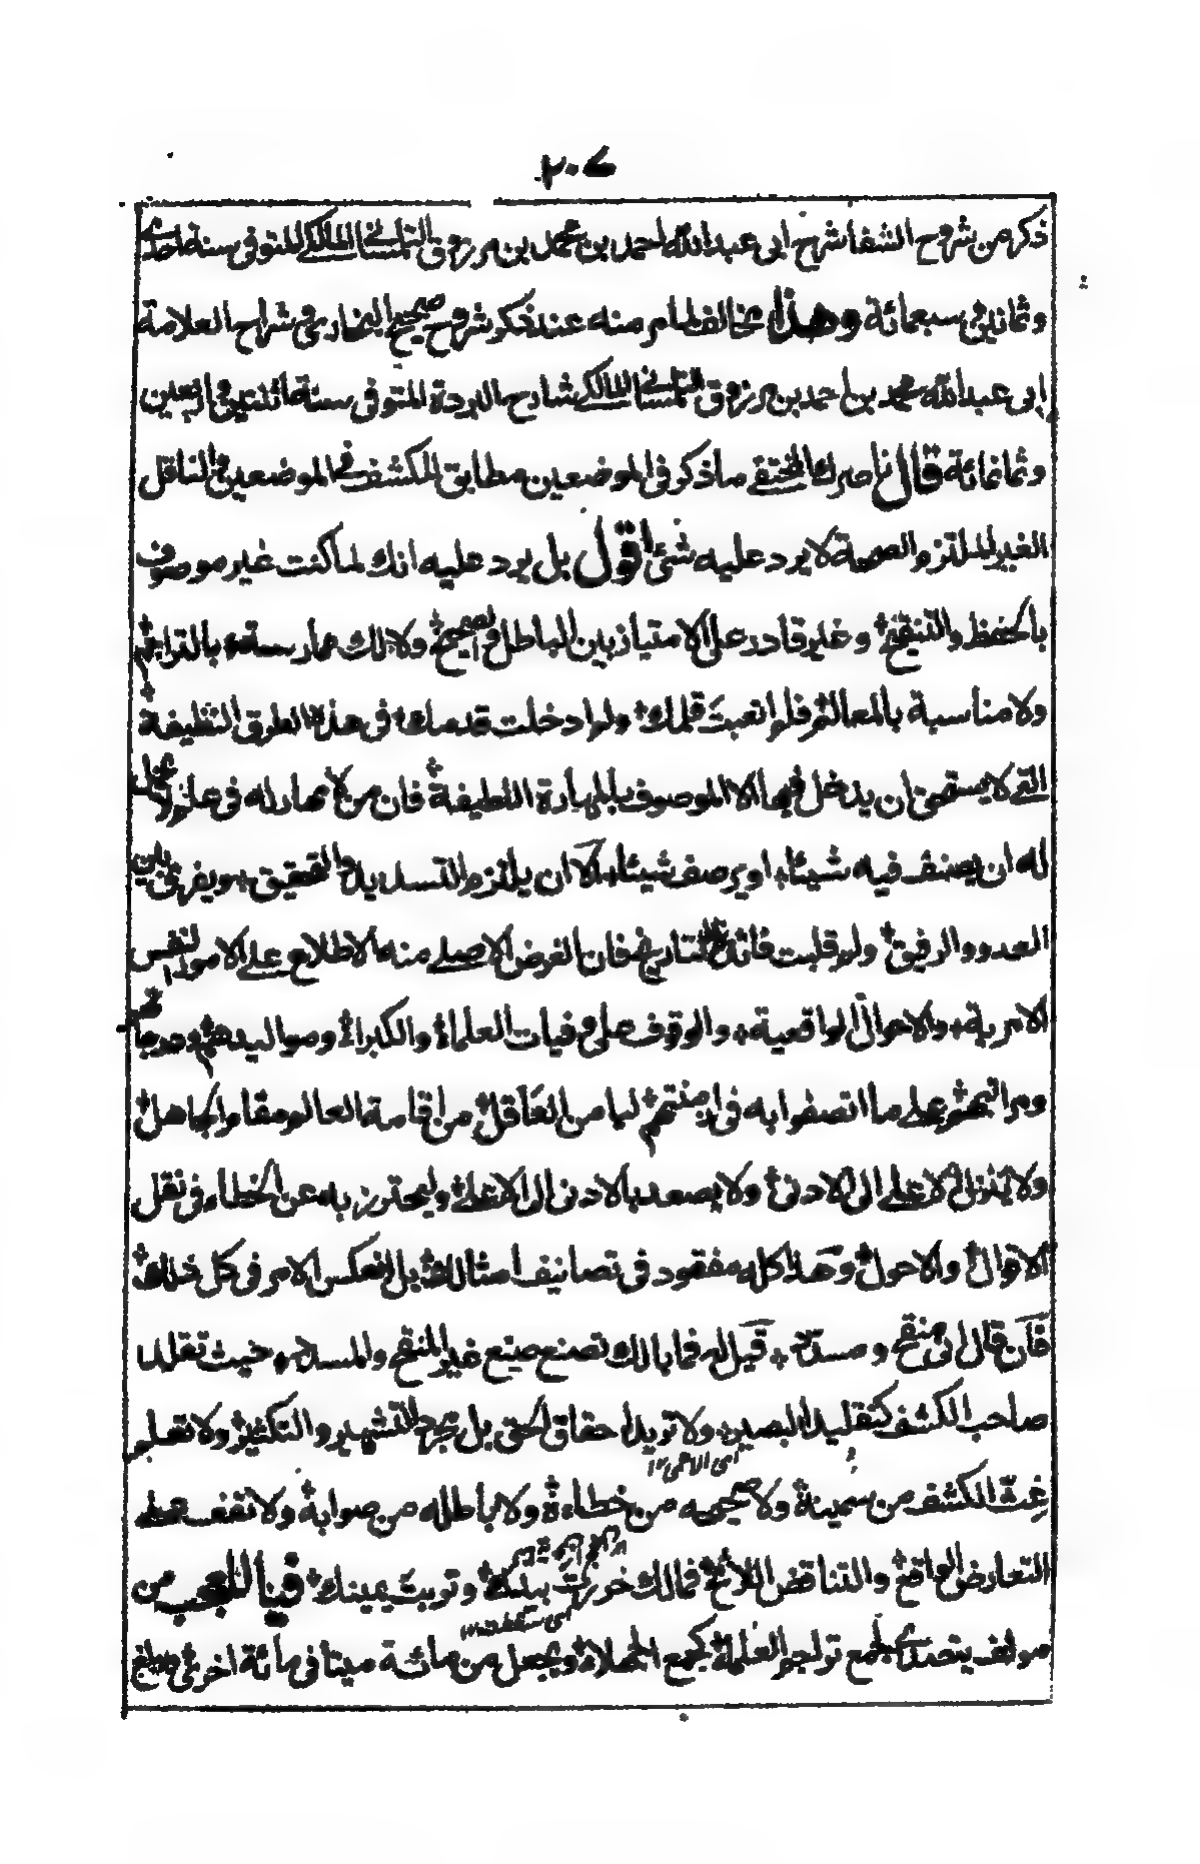 ٢٠٧
ذكر من شروح الشفا شرح ابى عبد الله احمد بن محمد بن مرزوق التلمسانى المالكى المتوفى سنة احدى
وثمانين وسبعمائة وهذا مخالف لما مر منه عند ذكر شروح صحيح البخارى فى شراح العلامة
ابى عبد الله محمد بن احمد بن مرزوق التلمسانى المالكى شارح البردة المتوفى سنة اثنتين واربعين
وثمانمائة قال ناصرك المختفى ما ذكر فى الموضعين مطابق للكشف فى الموضعين والناقل
الغير الملتزم الصحة لا يرد عليه شئ اقول بل يرد عليه انك لما كنت غير موصوف
بالحفظ والتنقيح وغير قادر على الامتياز بين الباطل والصحيح ولا لك ممارسة بالتراجم
ولا مناسبة بالمعالم فلم اتعبت قلمك ولم ادخلت قدمك فى هذه الطرق النظيفة
التى لا يستحق ان يدخل فيها الا الموصوف بالمهارة اللطيفة فان من لا مهارة له فى علم لا يحل
له ان يصنف فيه شيئا او يرصف شيئا الا ان يلتزم التسديد والتحقيق ويفرق بين
العدو والرفيق ولو قلبت فائدة التاريخ فان الغرض الاصلى منه الاطلاع على الامور النفس
الامرية والاحوال الواقعية والوقوف على وفيات العلماء والكبراء ومواليدهم ودرجاتهم
ومراتبهم وعلى ما اتصفوا به فى ازمنتهم ليامن العاقل من اقامة العالم مقام الجاهل
ولا ينزل الاعلى الى الادنى ولا يصعد بالادنى الى الاعلى وليحترز به عن الخطاء فى نقل
الاقوال والاحوال وهذا كله مفقود فى تصانيف امثالك بل انعكس الامر فى كل ذلك
فان قال انى منقح ومسدد قيل له فما بالك تصنع صنيع غير المنقح والمسدد حيث تقلد
صاحب الكشف كتقليد البصير ولا تريد احقاق الحق بل مجرد التشهير والتكثير ولا تعلم
اى الاعمى ١٢
غث الكشف من سمينه ولا صحيحه من خطاءه ولا باطله من صوابه ولا تقف على
التعارض الواقع والتناقض اللائح فمالك خررت بيدك وتربت يمينك فيا للعجب من
اى سقطت ١٢
مولف يتصدى لجمع تراجم العلماء كجمع الجهلاء ويجعل من مات فى مائة ميتا فى مائة اخرى ومبلغ